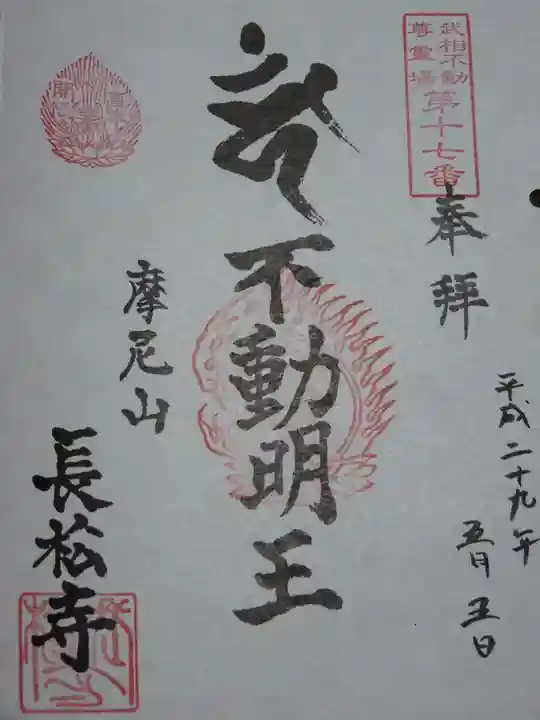 武相不動
尊霊場
第十七番
奉拝
平成二十九年
五月五日
不動明王
摩尼山
長松寺